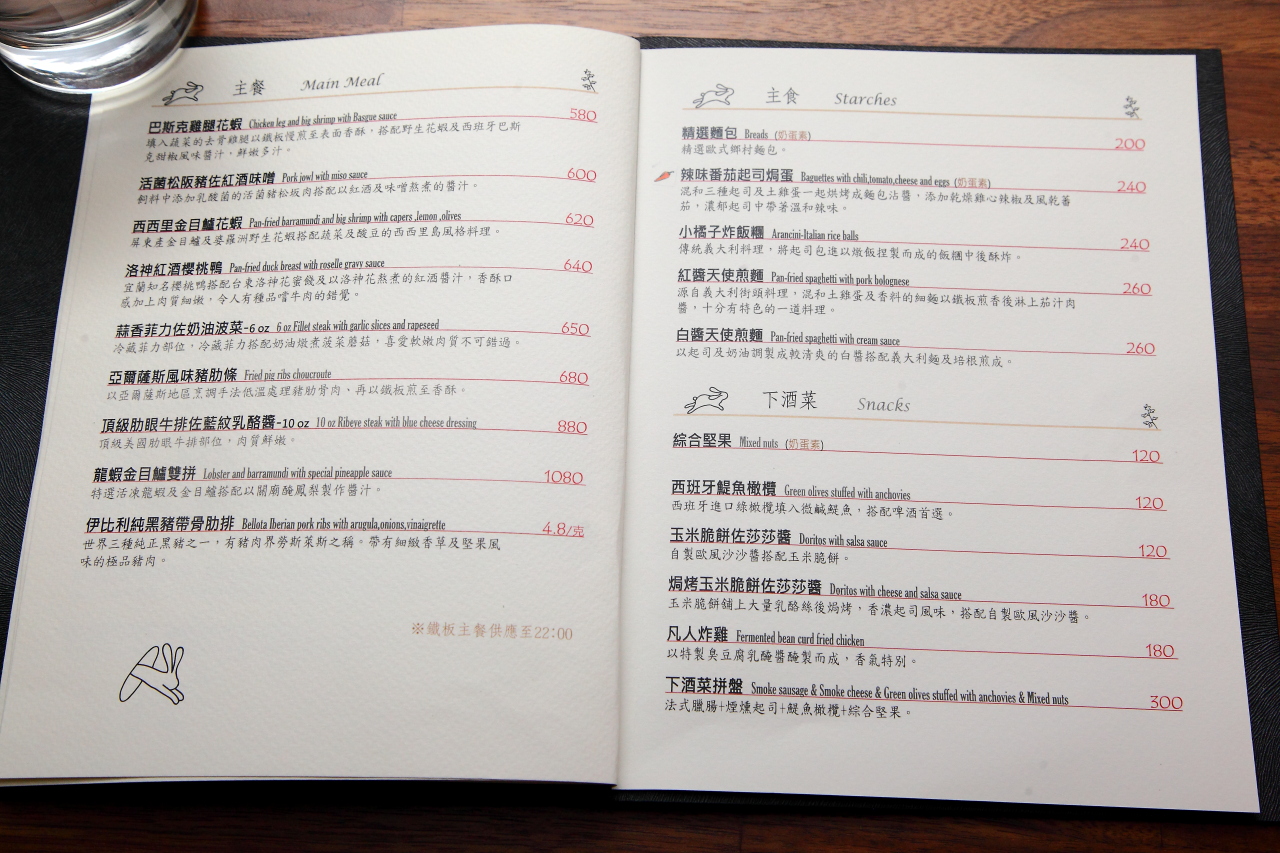 主餐 Main Meal
巴斯克雞腿花蝦 Chicken leg and big shrimp with Basgue sauce 580
填入蔬菜的去骨雞腿以鐵板慢煎至表面香酥，搭配野生花蝦及西班牙巴斯
克甜椒風味醬汁，鮮嫩多汁。
活菌松阪豬佐紅酒味噌 Pork jowl with miso sauce 600
飼料中添加乳酸菌的活菌豬松坂肉搭配以紅酒及味噌熬煮的醬汁。
西西里金目鱸花蝦 Pan-fried barramundi and big shrimp with capers ,lemon ,olives 620
屏東產金目鱸及婆羅洲野生花蝦搭配蔬菜及酸豆的西西里島風格料理。
洛神紅酒櫻桃鴨 Pan-fried duck breast with roselle gravy sauce 640
宜蘭知名櫻桃鴨搭配台東洛神花蜜餞及以洛神花熬煮的紅酒醬汁，香酥口
感加上肉質細嫩，令人有種品嚐牛肉的錯覺。
蒜香菲力佐奶油波菜-6 oz 6 oz Fillet steak with garlic slices and rapeseed 650
冷藏菲力部位，冷藏菲力搭配奶油燉煮菠菜蘑菇，喜愛軟嫩肉質不可錯過。
亞爾薩斯風味豬肋條 Fried pig ribs choucroute 680
以亞爾薩斯地區烹調手法低溫處理豬肋骨肉、再以鐵板煎至香酥。
頂級肋眼牛排佐藍紋乳酪醬-10 oz 10 oz Ribeye steak with blue cheese dressing 880
頂級美國肋眼牛排部位，肉質鮮嫩。
龍蝦金目鱸雙拼 Lobster and barramundi with special pineapple sauce 1080
特選活凍龍蝦及金目鱸搭配以關廟醃鳳梨製作醬汁。
伊比利純黑豬帶骨肋排 Bellota Iberian pork ribs with arugula,onions,vinaigrette 4.8/克
世界三種純正黑豬之一，有豬肉界勞斯萊斯之稱。帶有細緻香草及堅果風
味的極品豬肉。
※鐵板主餐供應至22:00
主食 Starches
精選麵包 Breads (奶蛋素) 200
精選歐式鄉村麵包。
辣味番茄起司焗蛋 Baguettes with chili,tomato,cheese and eggs (奶蛋素) 240
混和三種起司及土雞蛋一起烘烤成麵包沾醬，添加乾燥雞心辣椒及風乾蕃
茄，濃郁起司中帶著溫和辣味。
小橘子炸飯糰 Arancini-Italian rice balls 240
傳統義大利料理，將起司包進以燉飯捏製而成的飯糰中後酥炸。
紅醬天使煎麵 Pan-fried spaghetti with pork bolognese 260
源自義大利街頭料理，混和土雞蛋及香料的細麵以鐵板煎香後淋上茄汁肉
醬，十分有特色的一道料理。
白醬天使煎麵 Pan-fried spaghetti with cream sauce 260
以起司及奶油調製成較清爽的白醬搭配義大利麵及培根煎成。
下酒菜 Snacks
綜合堅果 Mixed nuts (奶蛋素) 120
西班牙鯷魚橄欖 Green olives stuffed with anchovies 120
西班牙進口綠橄欖填入微鹹鯷魚，搭配啤酒首選。
玉米脆餅佐莎莎醬 Doritos with salsa sauce 120
自製歐風沙沙醬搭配玉米脆餅。
焗烤玉米脆餅佐莎莎醬 Doritos with cheese and salsa sauce 180
玉米脆餅舖上大量乳酪絲後焗烤，香濃起司風味，搭配自製歐風沙沙醬。
凡人炸雞 Fermented bean curd fried chicken 180
以特製臭豆腐乳醃醬醃製而成，香氣特別。
下酒菜拼盤 Smoke sausage & Smoke cheese & Green olives stuffed with anchovies & Mixed nuts 300
法式臘腸+煙燻起司+鯷魚橄欖+綜合堅果。